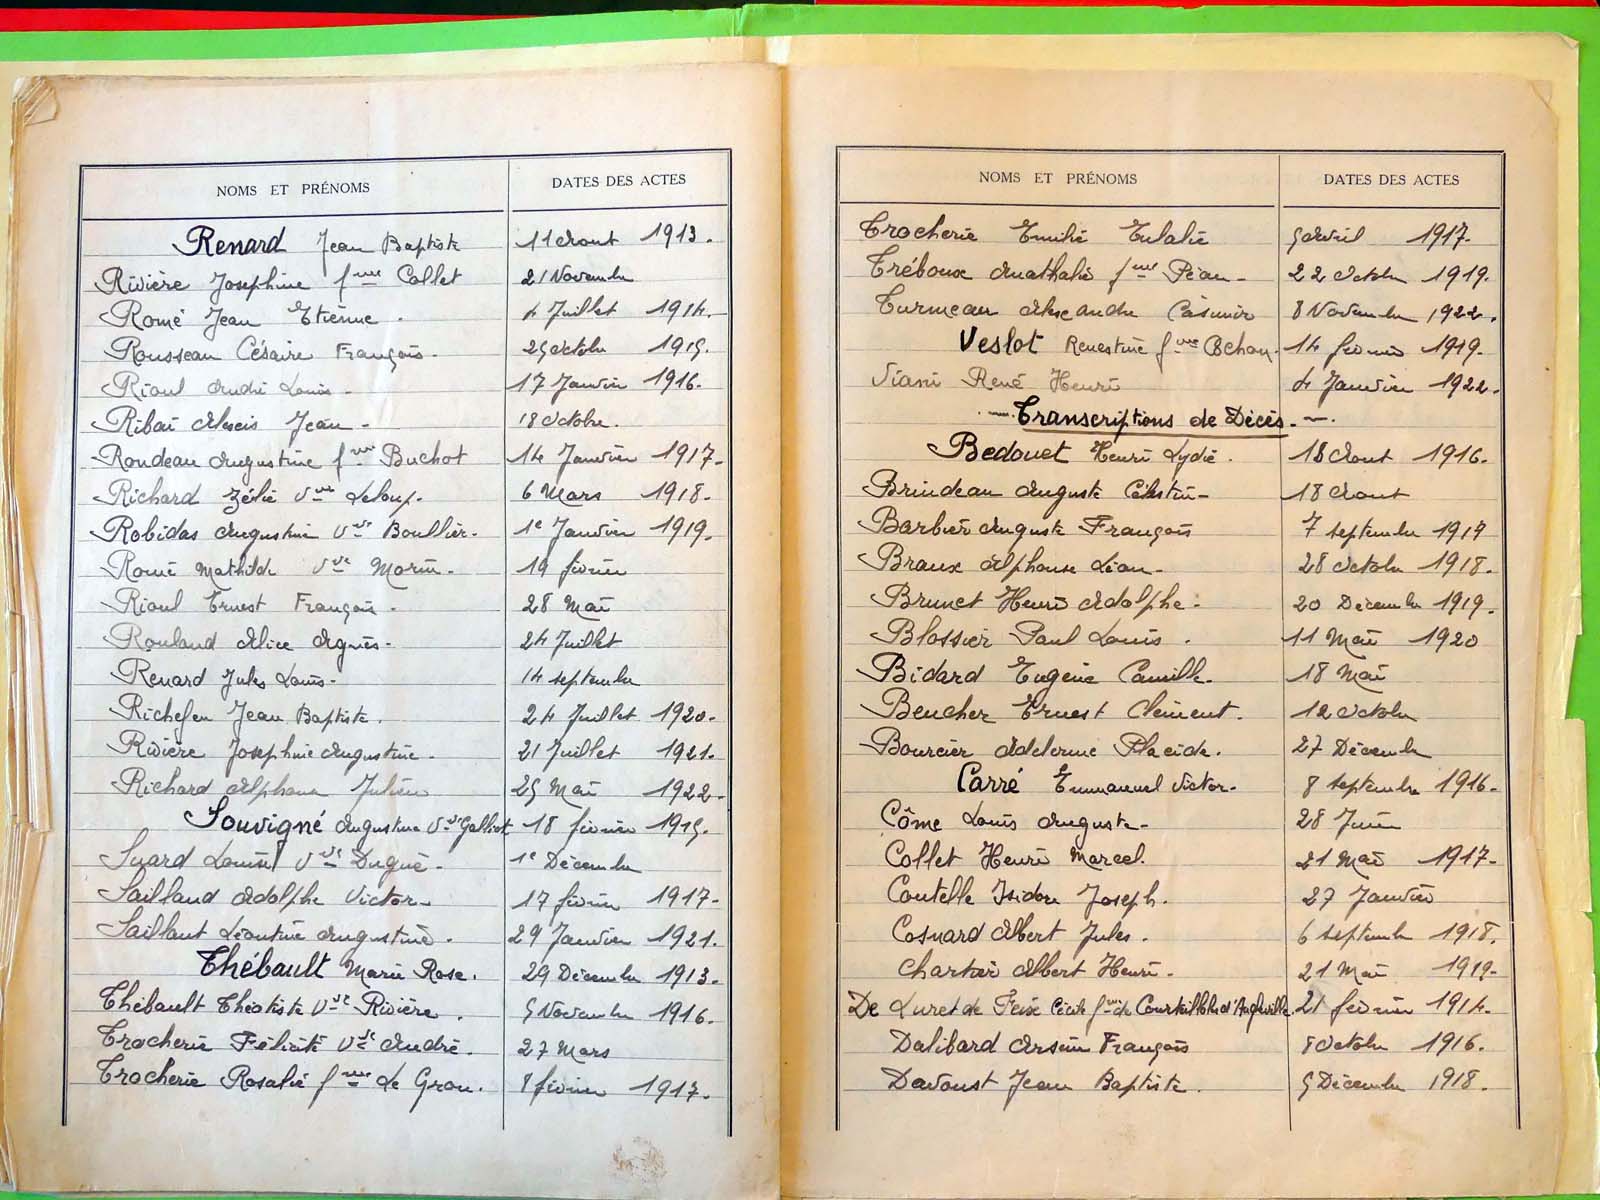 NOMS ET PRÉNOMS DATES DES ACTES
Renard Jean Baptiste 11 Aout 1913.
Rivière Josephine fme Collet 21 Novembre
Romé Jean Etienne. 4 Juillet 1914.
Rousseau Césaire François. 25 Octobre 1915.
Rioul André Louis. 17 Janvier 1916.
Ribai Alexis Jean. 18 Octobre.
Rondeau Augustine fme Buchot 14 Janvier 1917.
Richard Zélie Vve Leloup. 6 Mars 1918.
Robidas Augustine Vve Boullier. 1e Janvier 1919.
Romé Mathilde Vve Morin. 19 février
Rioul Ernest François. 28 Mai
Rouland Alice Agnès. 24 Juillet
Renard Jules Louis. 14 septembre
Richefeu Jean Baptiste. 24 Juillet 1920.
Rivière Josephine Augustine. 21 Juillet 1921.
Richard Alphonse Julien 25 Mai 1922.
Souvigné Augustine Vve 18 février 1915.
Suard Louise Vve Dugué. 1e Décembre
Sailland Adolphe Victor. 17 février 1917.
Saillant Léontine Augustine. 29 Janvier 1921.
Thébault Marie Rose. 29 Décembre 1913.
Thébault Théotiste Vve Rivière. 5 Novembre 1916.
Trocherie Félicité Vve André. 27 Mars
Trocherie Rosalie fme Le Grou. 8 février 1917.
NOMS ET PRÉNOMS DATES DES ACTES
Trocherie Emilie Eulalie 5 Avril 1917.
Tréboux Anathalie fme Péan. 22 Octobre 1919.
Turmeau Alexandre Casimir 8 Novembre 1922.
Veslot fme Bchon. 14 février 1919.
Viani René Henri 4 Janvier 1922.
Transcriptions de Décès.
Bedouet Henri Lydie. 18 Aout 1916.
Brindeau Auguste Célestin. 18 Aout
Barbier Auguste François 7 septembre 1917
Braux Alphonse Léon. 28 Octobre 1918.
Brunet Henri Adolphe. 20 Décembre 1919.
Blossier Paul Louis. 11 Mai 1920
Bidard Eugène Camille. 18 Mai
Beucher Ernest Clément. 12 Octobre
Bourcier Placide. 27 Décembre
Carré Emmanuel Victor. 8 septembre 1916.
Côme Louis Auguste. 28 Juin
Collet Henri Marcel. 21 Mai 1917.
Coutelle Isidore Joseph. 27 Janvier
Cosnard Albert Jules. 6 septembre 1918.
Chartier Albert Henri. 21 Mai 1919.
De Luret de Feix Cécile fme de 21 février 1914.
Dalibard Arsène François 8 Octobre 1916.
Davoust Jean Baptiste. 5 Décembre 1918.